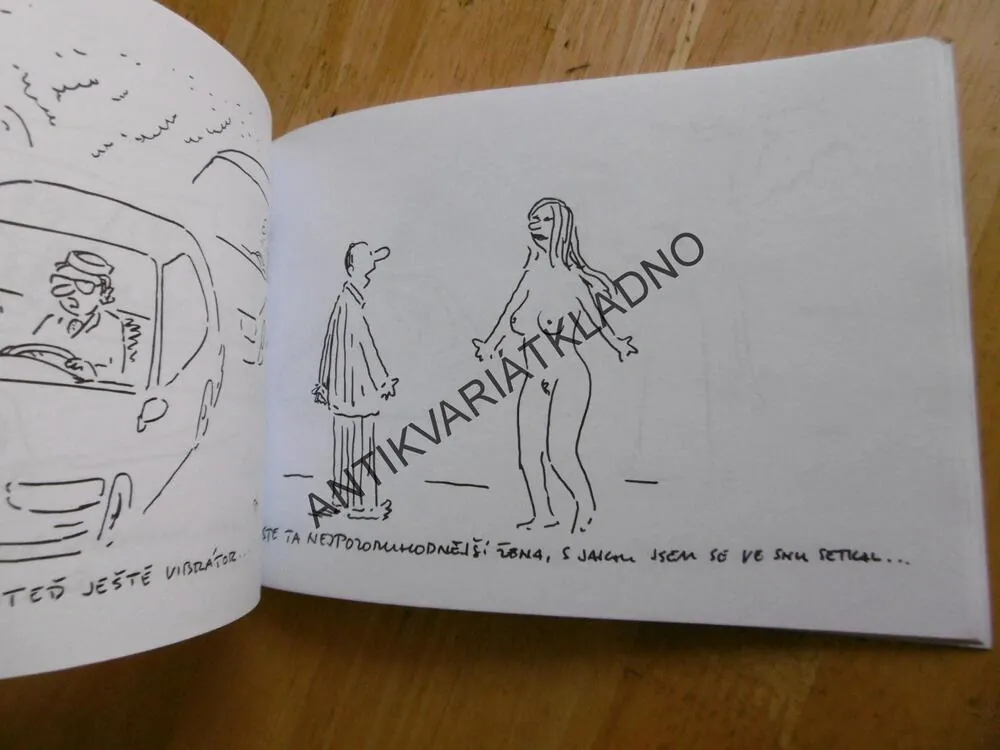 TEĎ JEŠTĚ VIBRÁTOR...
STE TA NEJPOZORUHODNĚJŠÍ ŽENA, S JAKOU JSEM SE VE SNU SETKAL...
ANTIKVARIÁTKLADNO